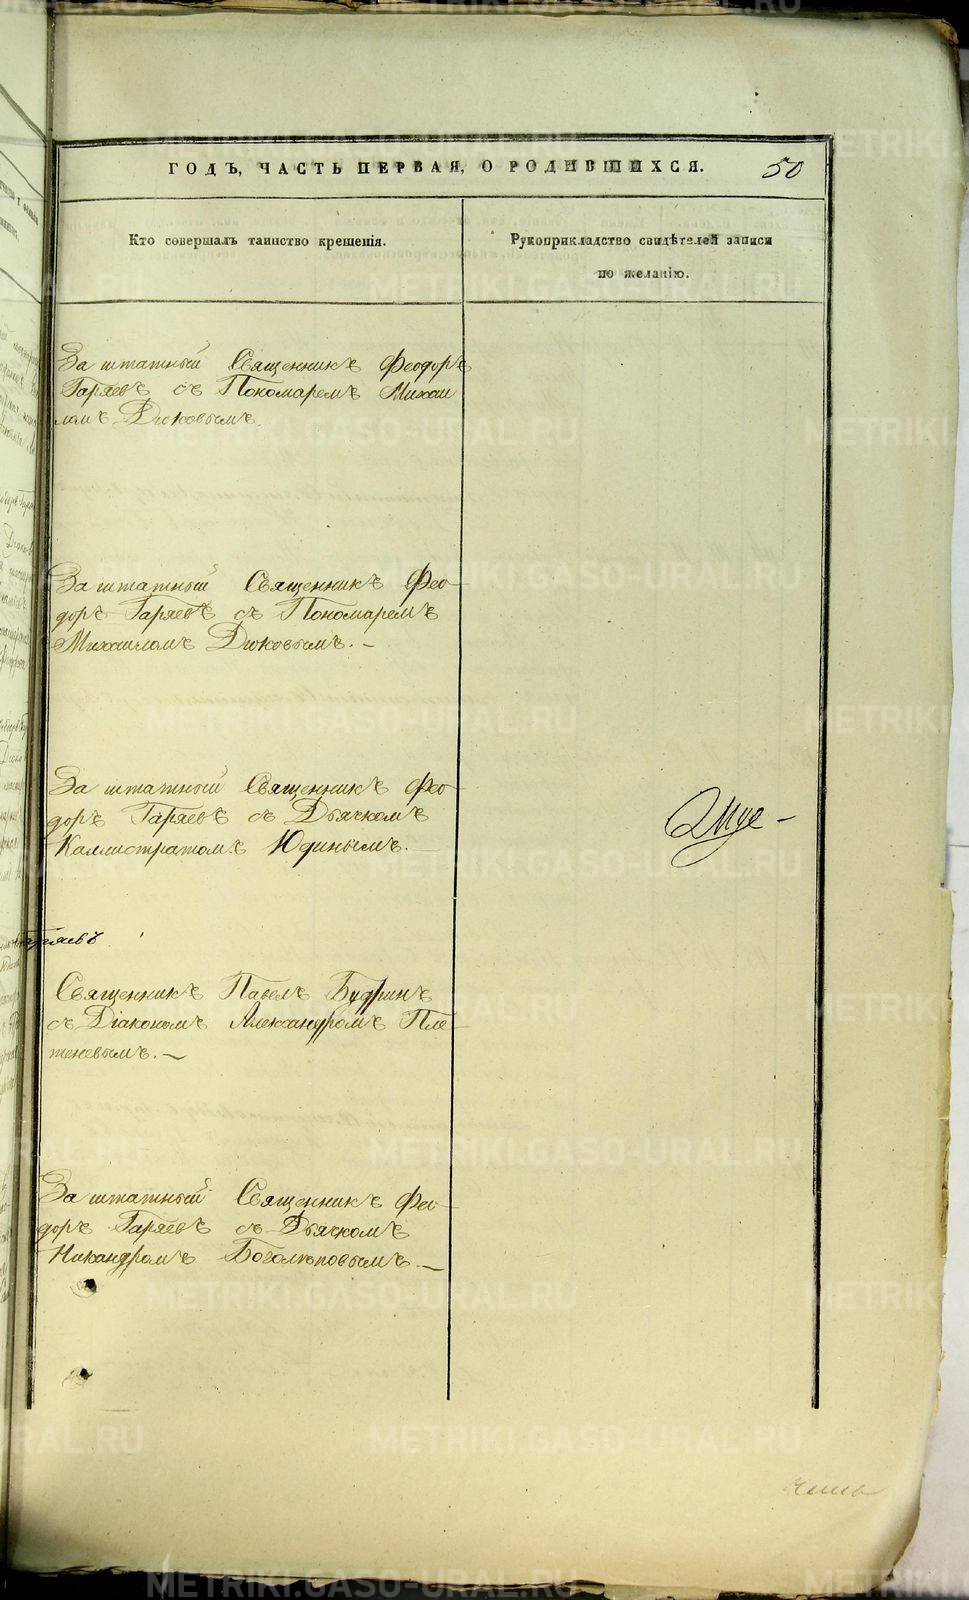 ГОДЪ, ЧАСТЬ ПЕРВАЯ, О РОДИВШИХСЯ. 50
Кто совершалъ таинство крещенія.
Рукоприкладство свидѣтелей записи
по желанію.
За штатный Священникъ Феодоръ
Гаряевъ съ Пономаремъ Михаи
ломъ Дюковымъ.
За штатный Священникъ Фео-
доръ Гаряевъ съ Пономаремъ
Михаиломъ Дюковымъ. –
За штатный Священникъ Фео-
доръ Гаряевъ съ Дьячкомъ
Каллистратомъ Юдинымъ. –
Священникъ Павелъ Будринъ
съ Діакономъ Александромъ Пле-
теневымъ. –
За штатный Священникъ Фео-
доръ Гаряевъ съ Дьячкомъ
Никандромъ Боголѣповымъ. –
METRIKI.GASO-URAL.RU